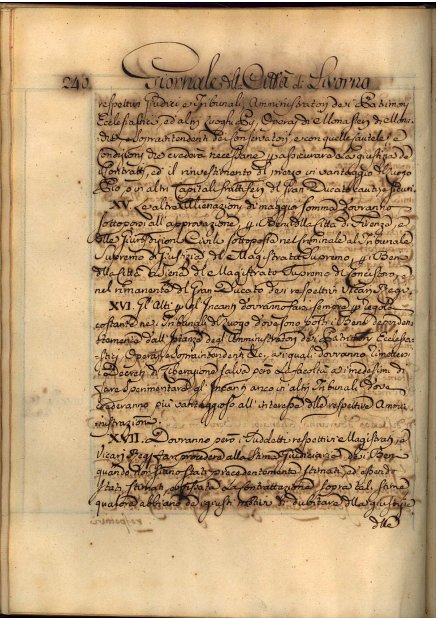 240. Giornale della Città di Livorno
respettivi Giudici e Tribunali, Amministratori dei Patrimonj
Ecclesiastici, ed altri Luoghi Pij, Operai di Monasteri di Mona-
che, e Sopraintendenti dei Conservatorj, e con quelle cautele, e
Condizioni che crederà necessarie per assicurare la giustizia de
Contratti, ed il rinvestimento del prezzo in vantaggio del Luogo
Pio, o in altri Capitali fruttiferi del Gran Ducato cauti, e sicuri.
XV. Le altre Alienazioni di maggior somma dovranno
sottoporsi all'approvazione, per i Beni della Città di Firenze, e
delle Giurisdizioni Civili sottoposte nel Criminale al Tribunale
Supremo di Giustizia, del Magistrato Supremo, per i Beni
della Città di Siena del Magistrato Supremo dei Concistoro, e
nel rimanente del Gran Ducato dei respettivi Vicarj Regj.
XVI. Gl'Atti per gl'Incanti dovranno farsi sempre per regola
costante nel Tribunale del Luogo dove sono posti i Beni dependen-
temente dall'istanza degl'Amministratori dei Patrimonj Ecclesia-
stici, Operai, e Sopraintendenti &c., ai quali dovranno rimettersi
i Decreti di Liberazione, salva però la facoltà ai medesimi di
fare sperimentare gl'Incanti anco in altri Tribunali dove
crederanno più vantaggioso all'interesse delle respettive Ammi-
nistrazioni.
XVII. Dovranno però i suddetti respettivi Magistrati, e
Vicarj Regj far procedere alla Stima Giudiciaria dei Beni
quando non siano stati precedentemente stimati, ed essendo
stati stimati, e la contrattazione sopra tal stima
qualora abbiano dei giusti motivi di dubitare della giustizia
della